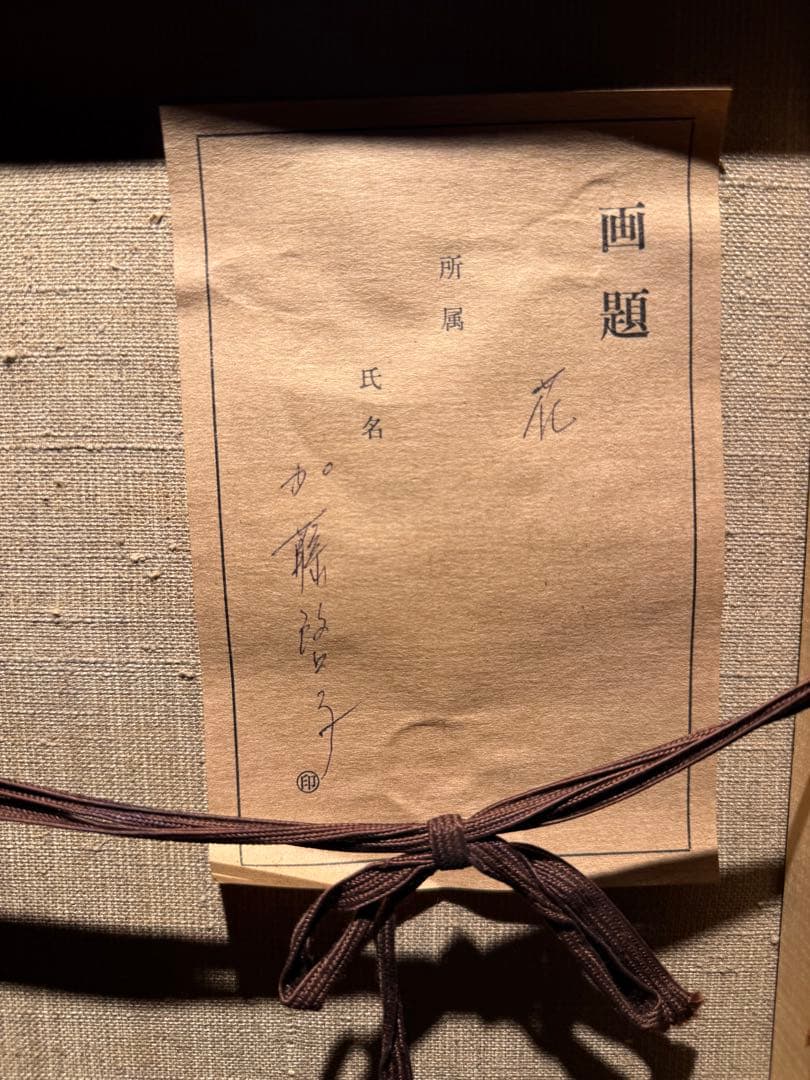 画題
花
所属
氏名
加藤啓子
㊞